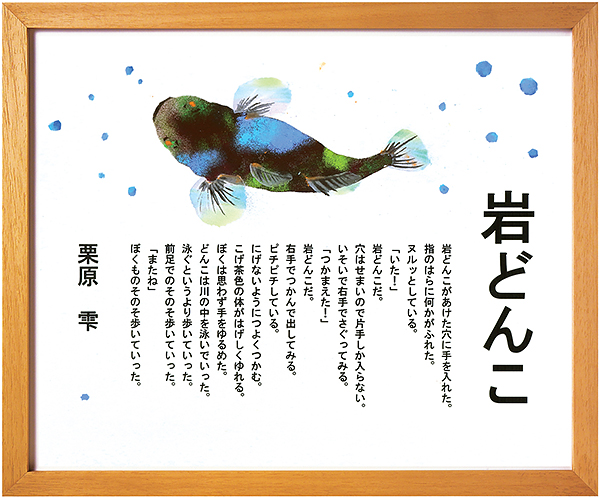 岩どんこ
岩どんこがあけた穴に手を入れた。
指のはらに何かがふれた。
ヌルッとしている。
「いた！」
岩どんこだ。
穴はせまいので片手しか入らない。
いそいで右手でさぐってみる。
「つかまえた！」
岩どんこだ。
右手でつかんで出してみる。
ピチピチしている。
にげないようにつよくつかむ。
こげ茶色の体がはげしくゆれる。
ぼくは思わず手をゆるめた。
どんこは川の中を泳いでいった。
泳ぐというより歩いていった。
前足でのそのそ歩いていった。
「またね」
ぼくものそのそ歩いていった。
栗原　雫